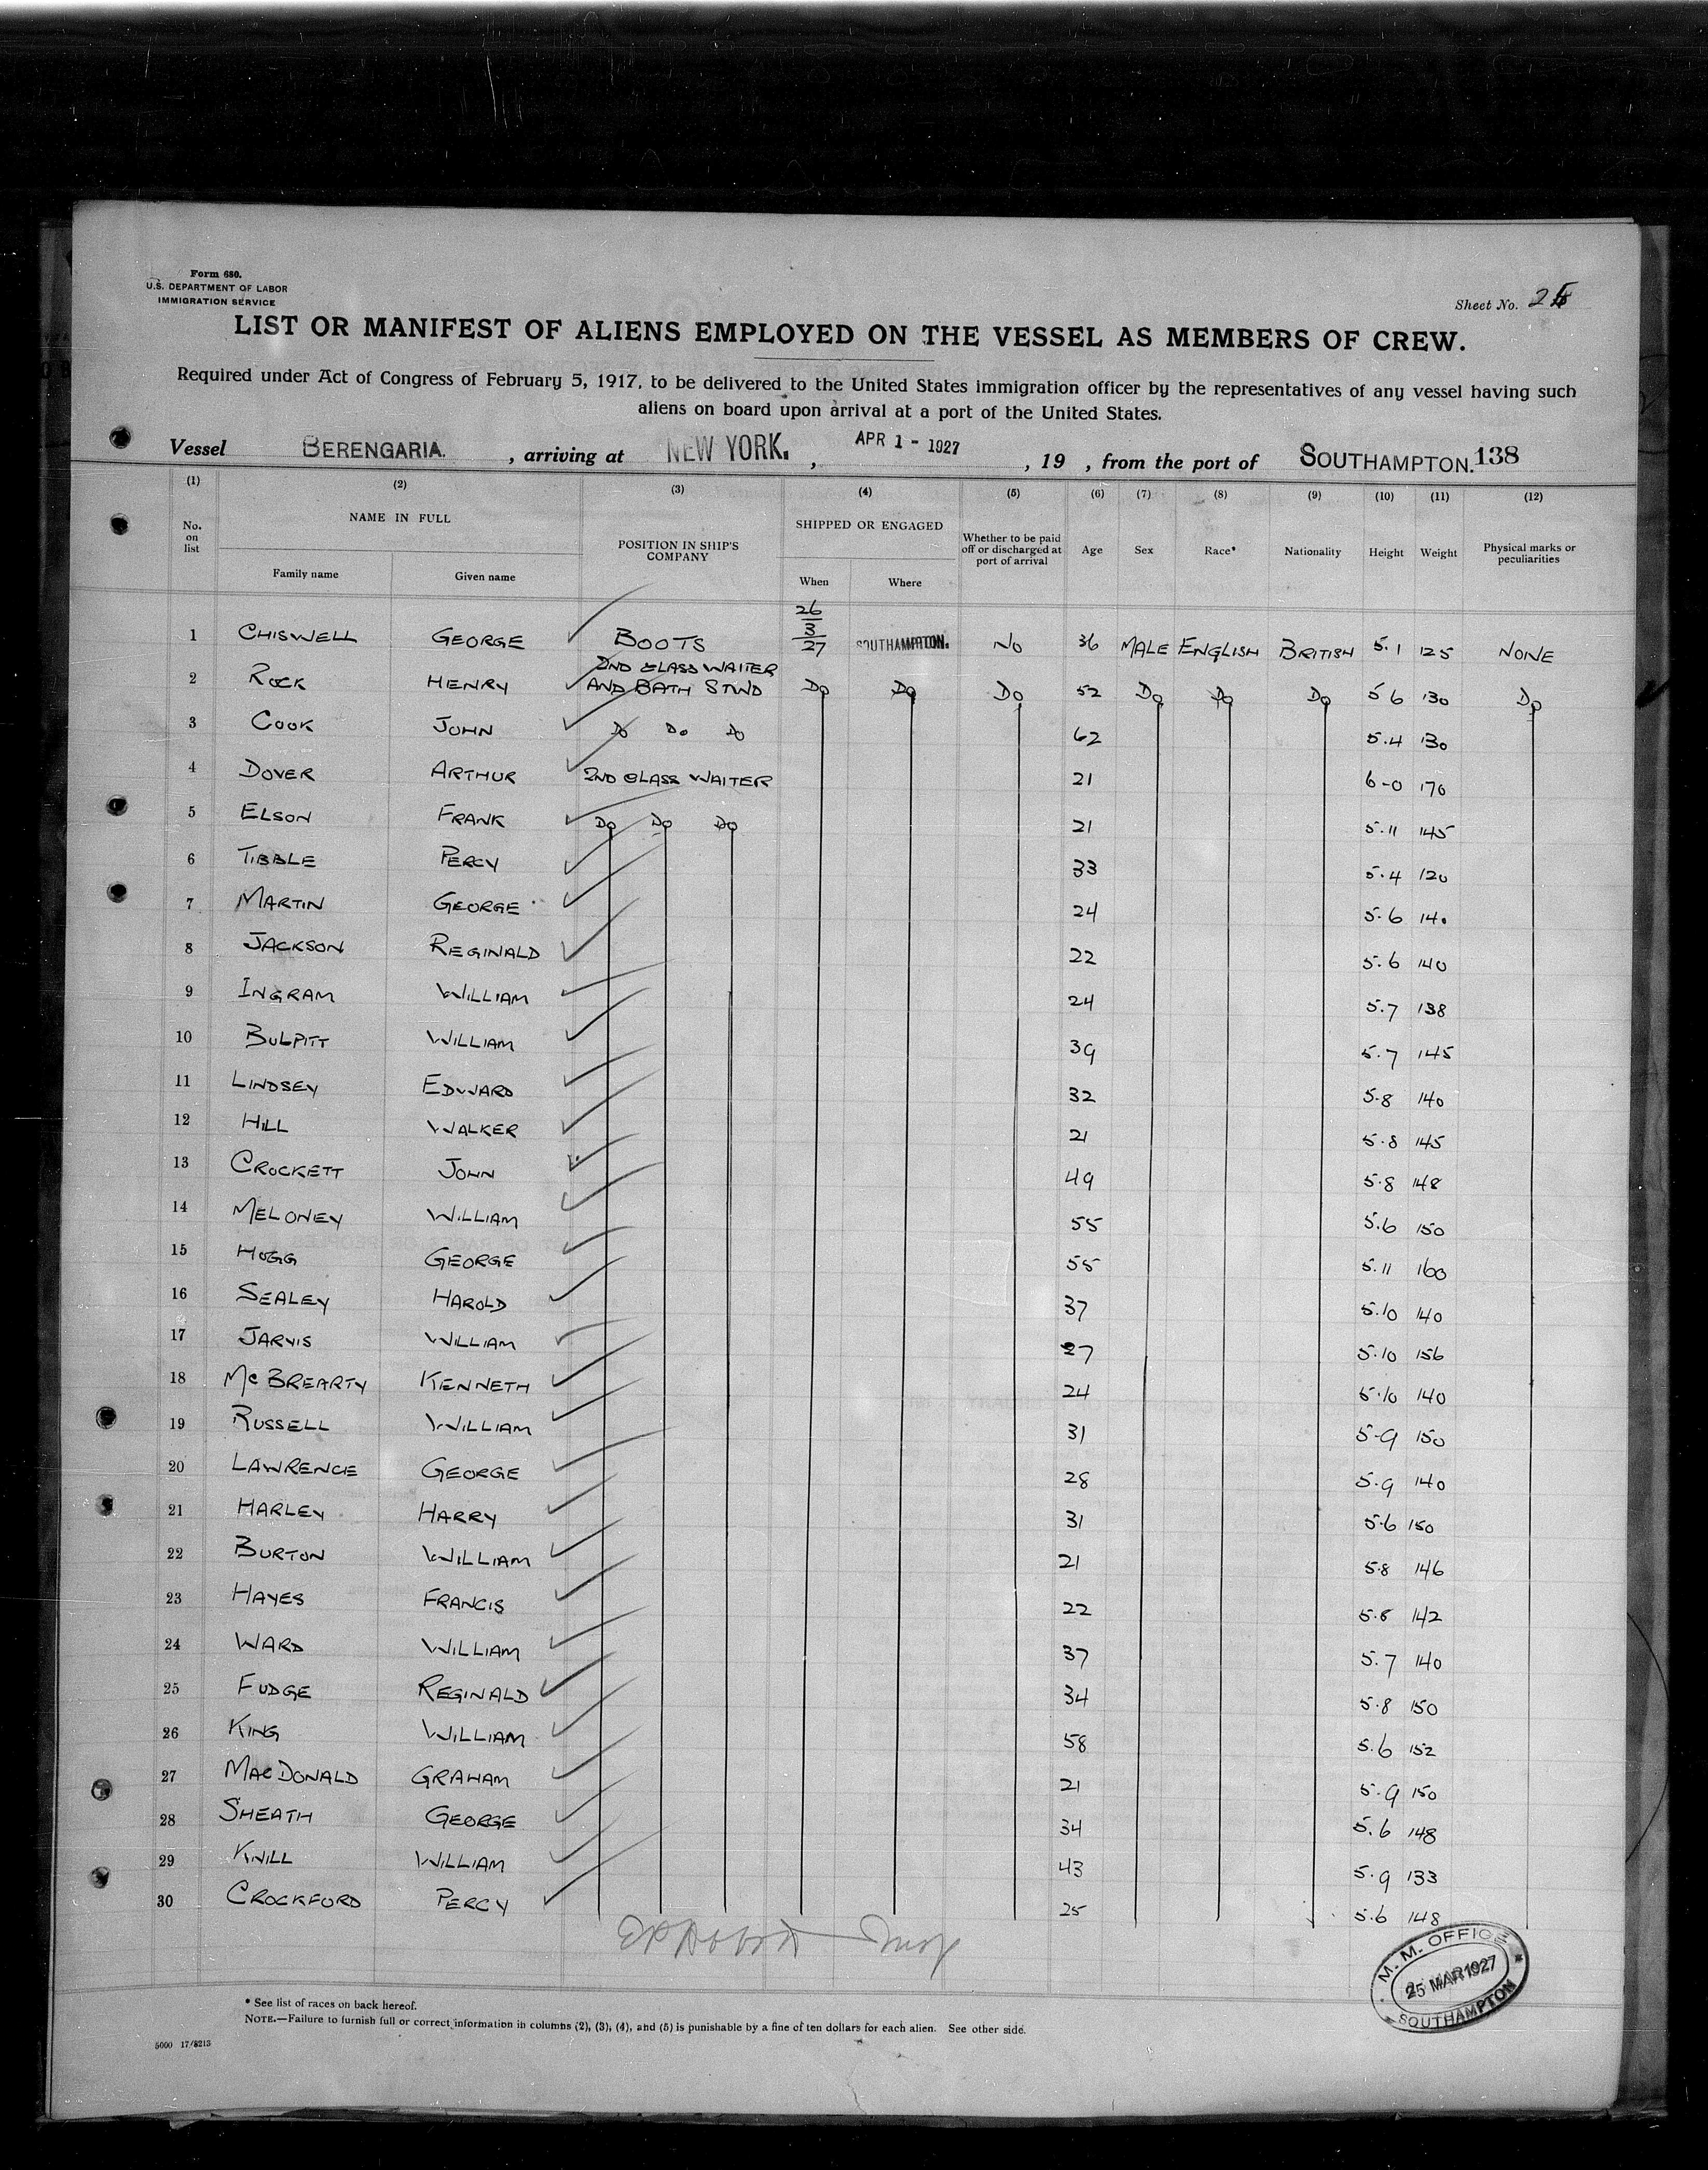 Form 680.
U.S. DEPARTMENT OF LABOR
IMMIGRATION SERVICE
Sheet No.
LIST OR MANIFEST OF ALIENS EMPLOYED ON THE VESSEL AS MEMBERS OF CREW.
Required under Act of Congress of February 5, 1917, to be delivered to the United States immigration officer by the representatives of any vessel having such
aliens on board upon arrival at a port of the United States.
Vessel BERENGARIA. , arriving at NEW YORK. , APR 1 - 1927 , 19 , from the port of SOUTHAMPTON. 138
(1) (2) (3) (4) (5) (6) (7) (8) (9) (10) (11) (12)
No. on list NAME IN FULL POSITION IN SHIP'S COMPANY SHIPPED OR ENGAGED Whether to be paid off or discharged at port of arrival Age Sex Race* Nationality Height Weight Physical marks or peculiarities
Family name Given name When Where
1 CHISWELL GEORGE BOOTS 26/3/27 SOUTHAMPTON. NO 36 MALE ENGLISH BRITISH 5.1 125 NONE
2 ROCK HENRY 2ND CLASS WAITER AND BATH STWD DO DO DO 52 DO DO DO 5 6 130 DO
3 COOK JOHN DO DO DO 62 5.4 130
4 DOVER ARTHUR 2ND CLASS WAITER 21 6-0 170
5 ELSON FRANK DO DO DO 21 5.11 145
6 TIBBLE PERCY 33 5.4 120
7 MARTIN GEORGE 24 5.6 140
8 JACKSON REGINALD 22 5.6 140
9 INGRAM WILLIAM 24 5.7 138
10 BULPITT WILLIAM 39 5.7 145
11 LINDSEY EDWARD 32 5.8 140
12 HILL WALKER 21 5.8 145
13 CROCKETT JOHN 49 5.8 148
14 MELONEY WILLIAM 55 5.6 150
15 HOGG GEORGE 55 5.11 160
16 SEALEY HAROLD 37 5.10 140
17 JARVIS WILLIAM 27 5.10 156
18 McBREARTY KENNETH 24 5.10 140
19 RUSSELL WILLIAM 31 5-9 150
20 LAWRENCE GEORGE 28 5.9 140
21 HARLEY HARRY 31 5.6 150
22 BURTON WILLIAM 21 5.8 146
23 HAYES FRANCIS 22 142
24 WARD WILLIAM 37 5.7 140
25 FUDGE REGINALD 34 5.8 150
26 KING WILLIAM 58 5.6 152
27 MACDONALD GRAHAM 21 5.9 150
28 SHEATH GEORGE 34 5.6 148
29 KNILL WILLIAM 43 5.9 133
30 CROCKFORD PERCY 25 5.6 148
M. M. OFFICE
25 MAR 1927
SOUTHAMPTON
* See list of races on back hereof.
NOTE.—Failure to furnish full or correct information in columns (2), (3), (4), and (5) is punishable by a fine of ten dollars for each alien. See other side.
5000 17/8213